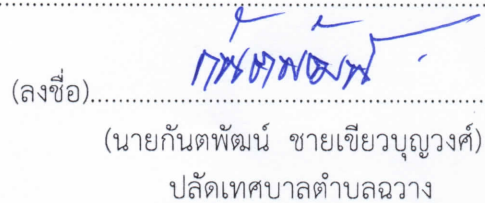 (ลงชื่อ)
(นายกันตพัฒน์ ชายเขียวบุญวงศ์)
ปลัดเทศบาลตำบลฉวาง